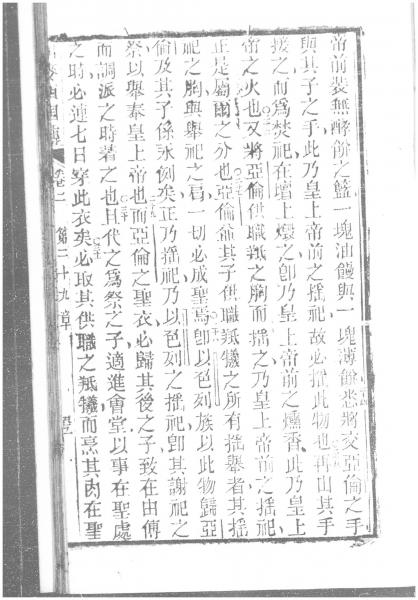 帝前裝無酵餅之籃一塊油饅與一塊薄餅悉將交亞倫之手
與其子之手此乃皇上帝前之搖祀故必搖此物也再由其手
接之而爲焚祀在壇上燬之卽乃皇上帝前之燻香此乃皇上
帝之火也又將亞倫供職羝之胸而搖之乃皇上帝前之搖祀
正是屬爾之分也亞倫並其子供職羝犧之所有搖舉者其搖
祀之胸與舉祀之肩一切必成聖焉卽以色列族以此物歸亞
倫及其子係永例矣正乃搖祀乃以色列之搖祀卽其謝祀之
祭以舉奉皇上帝也而亞倫之聖衣必歸其後之子致在由傅
而調派之時著之也且代之爲祭之子適進會堂以事在聖處
之時必連七日穿此衣矣必取其供職之羝犧而烹其肉在聖
卷二 第二十九章